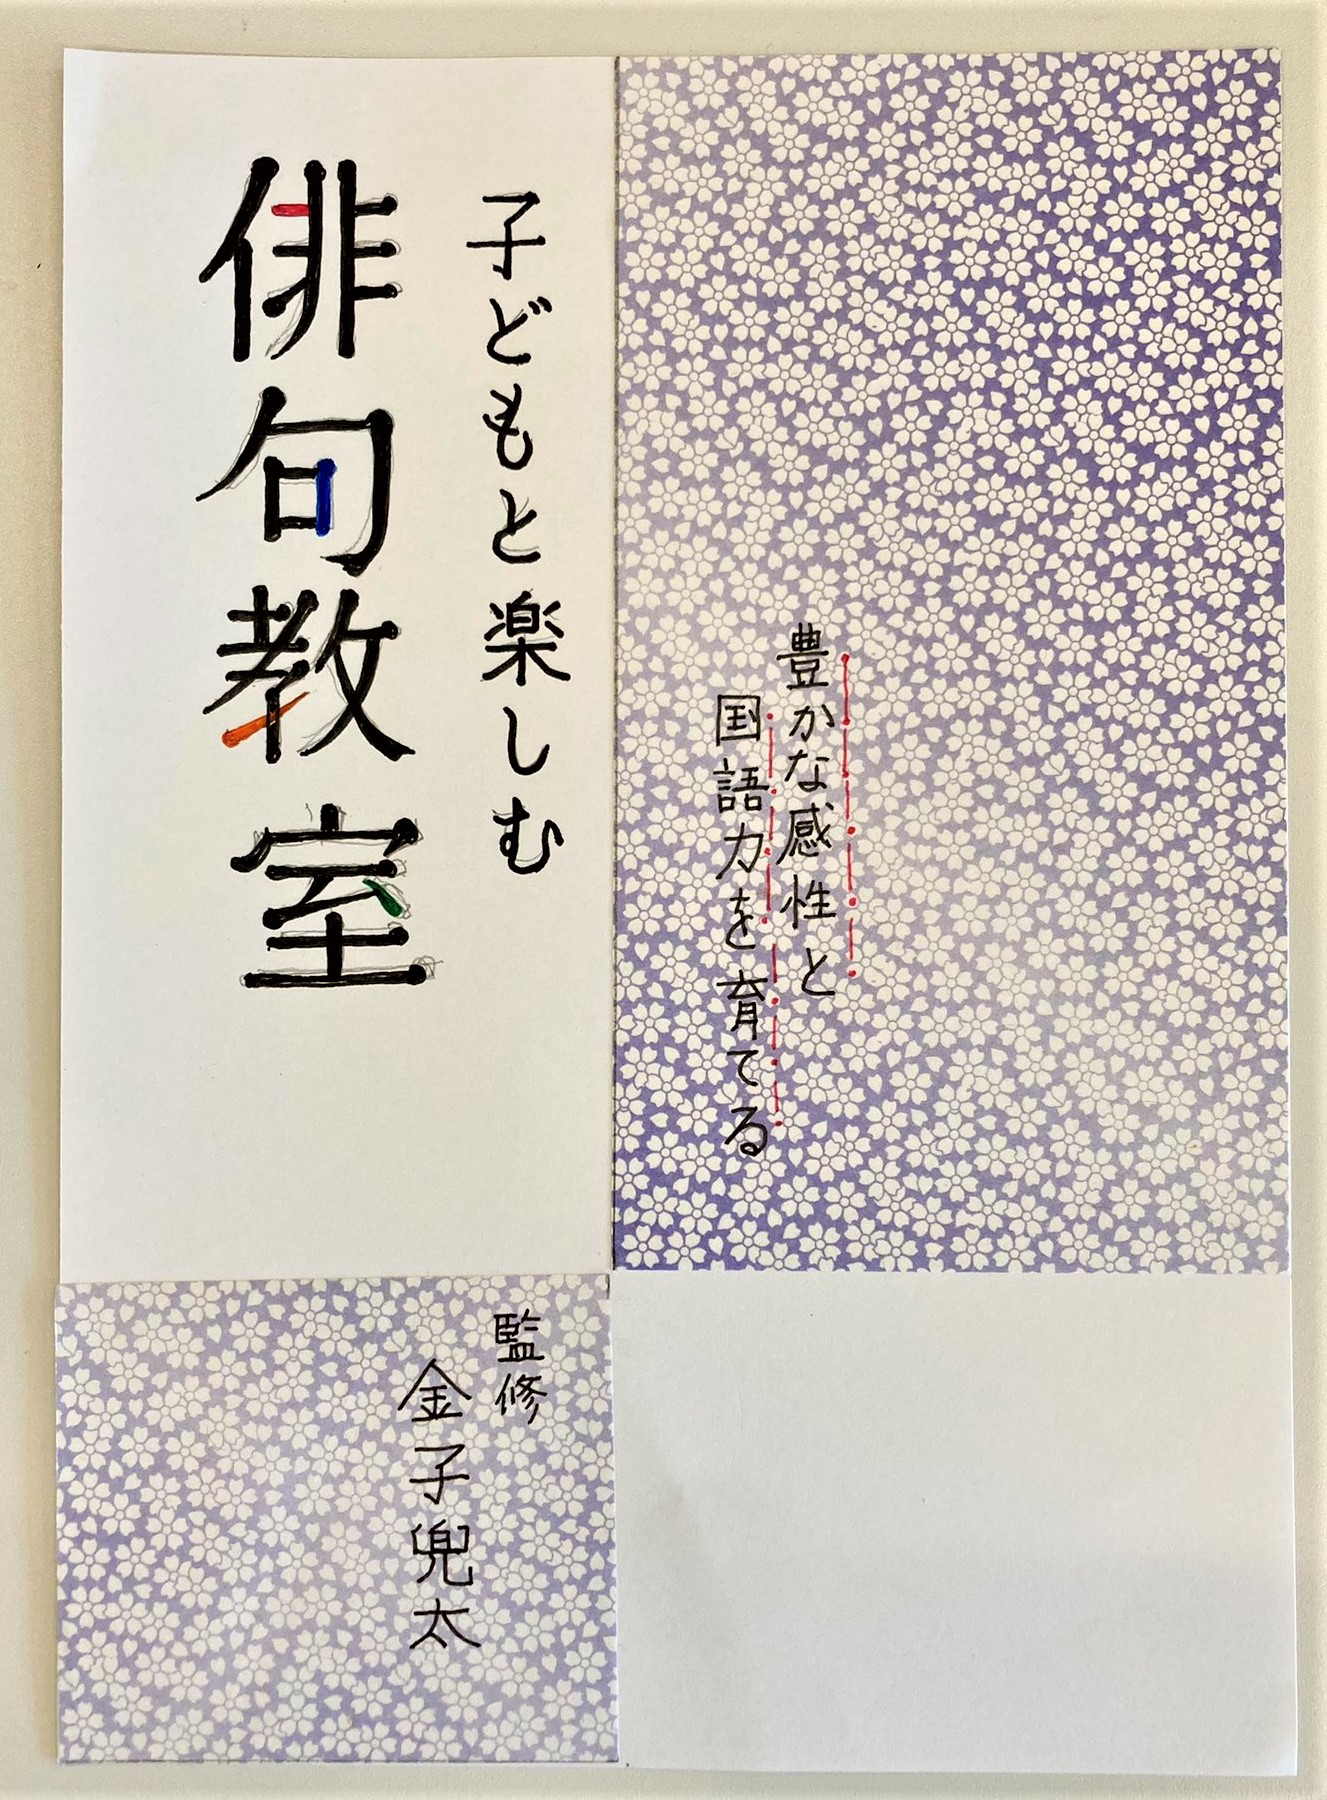 豊かな感性と
国語力を育てる
子どもと楽しむ
俳句教室
監修
金子兜太